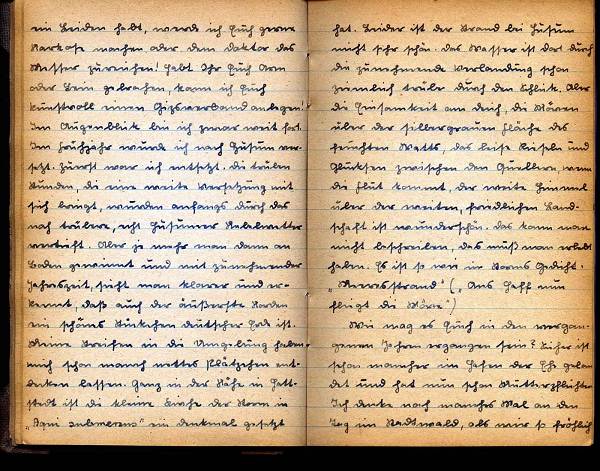 ein Leiden habt, werde ich Euch gerne
Narkose machen oder dem Doktor das
Messer zureichen! Habt Ihr Euch Arm
oder Bein gebrochen, kann ich Euch
kunstvoll einen Gipsverband anlegen!
Im Augenblick bin ich zwar weit fort.
Im Frühjahr wurde ich nach Husum ver-
setzt. Zuerst war ich entsetzt. Die trüben
Stunden, die eine weite Versetzung mit
sich bringt, wurden anfangs durch das
noch trübere, echt Husumer Nebelwetter
vertieft. Aber je mehr man dann an
Boden gewinnt und mit zunehmender
Jahreszeit, sieht man klarer und er-
kennt, daß auch der äußerste Norden
ein schönes Stückchen deutscher Erde ist.
Meine Streifen in die Umgebung haben
mich schon manch nettes Plätzchen ent-
decken lassen. Ganz in der Nähe in Hatt-
stedt ist die kleine Kirche der Storm in
"Aquis submersus" ein Denkmal gesetzt
hat. Leider ist der Strand bei Husum
nicht sehr schön. Das Wasser ist dort durch
die zunehmende Verlandung schon
ziemlich trübe durch den Schlick. Aber
die Einsamkeit am Deich, die Möven
über der silbergrauen Fläche des
feuchten Watts, das leise Rieseln und
Glucksen zwischen den Quellern, wenn
die Flut kommt, der weite Himmel
über der weiten, friedlichen Land-
schaft ist wunderschön. Das kann man
nicht beschreiben, das muß man erlebt
haben. Es ist so wie in Storms Gedicht.
"Meeresstrand" ("Ans Haff nun
fliegt die Möve")
Wie mag es Euch in den vergan-
genen Jahren ergangen sein? Sicher ist
schon mancher im Hafen der Ehe gelan-
det und hat nun schon Mutterpflichten
Ich denke noch manches Mal an den
Tag im Stadtwald, als wir so fröhlich